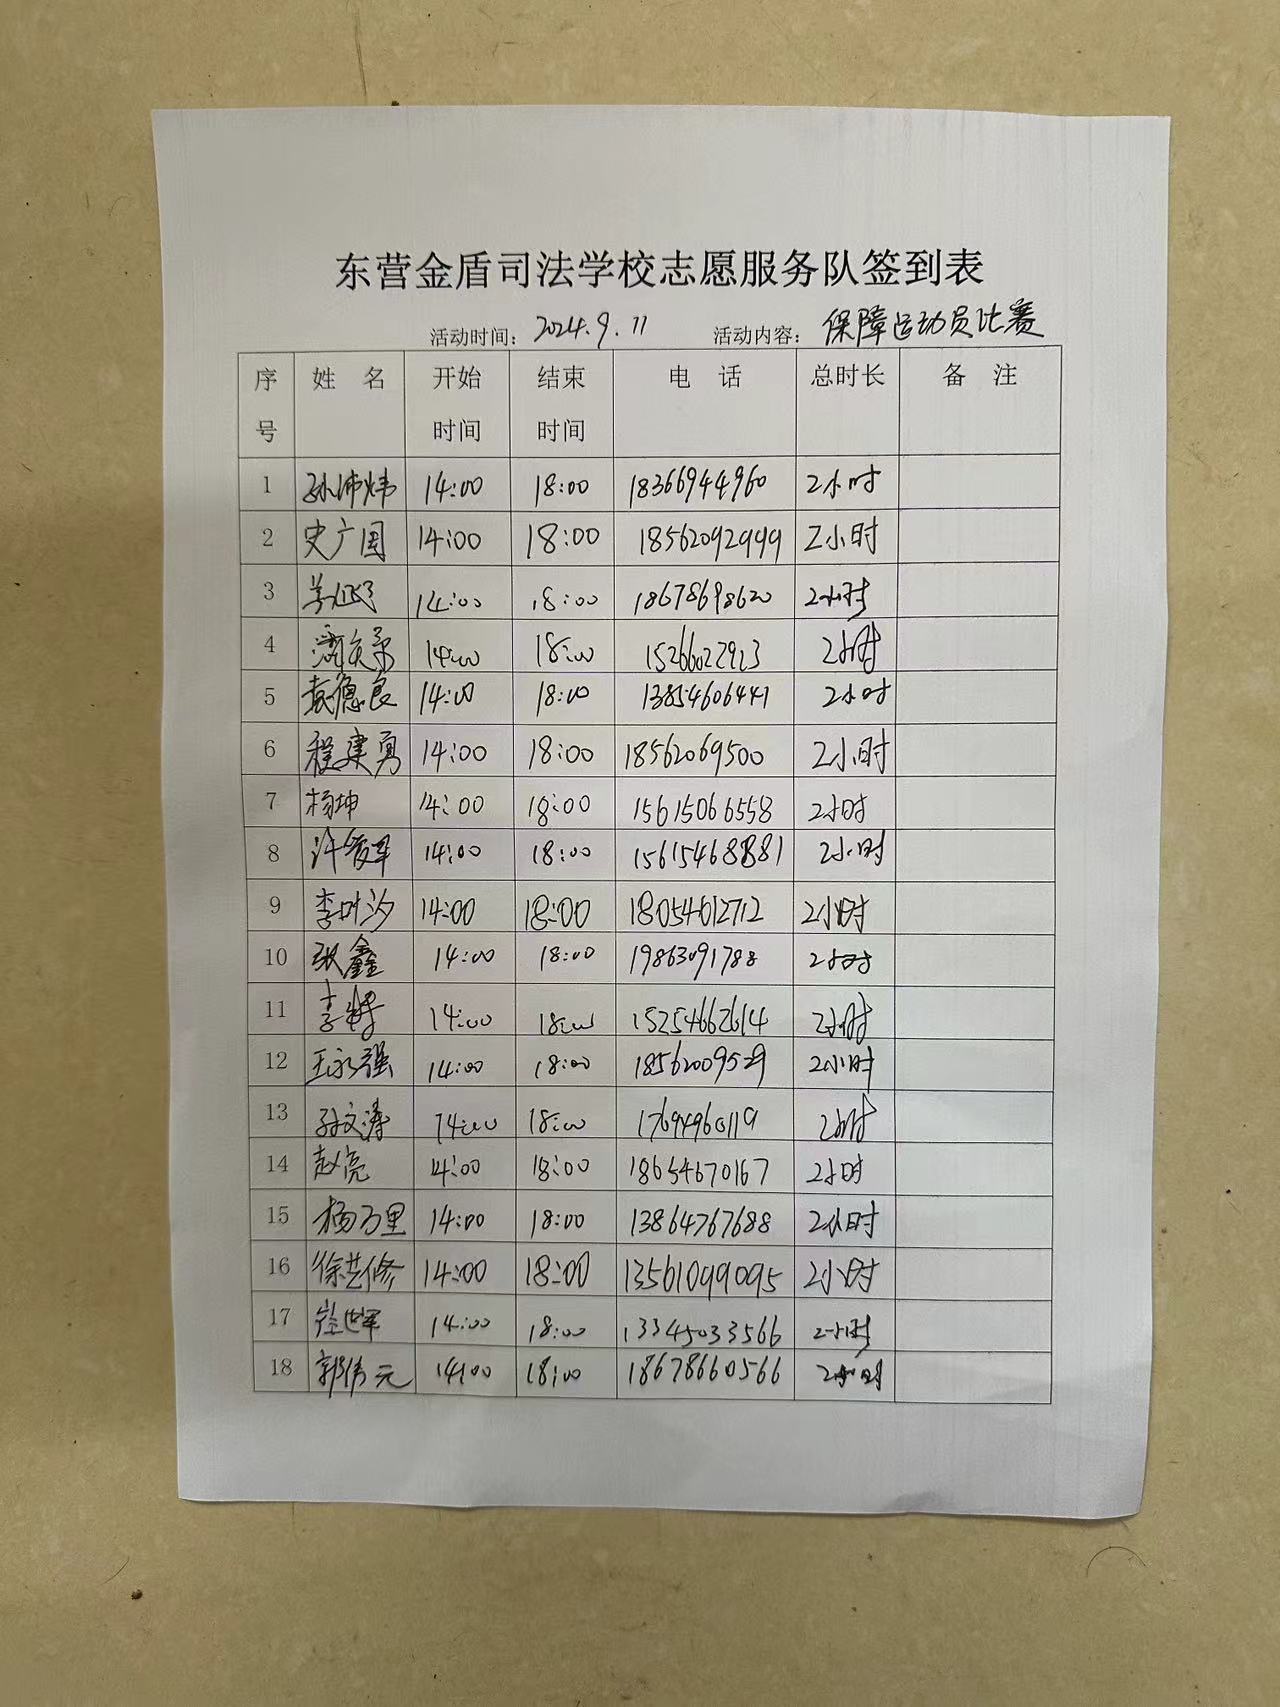 东营金盾司法学校志愿服务队签到表
活动时间：2024.9.11 活动内容：保障运动员比赛
序号 姓名 开始时间 结束时间 电话 总时长 备注
1 孙沛炜 14:00 18:00 18366944960 2小时
2 史广国 14:00 18:00 18562092999 2小时
3 14:00 18:00 18678698620 2小时
4 14:00 18:00 15266022923 2小时
5 袁德良 14:00 18:00 13854606441 2小时
6 程建勇 14:00 18:00 18562069500 2小时
7 杨坤 14:00 18:00 15615066558 2小时
8 许爱军 14:00 18:00 15615468881 2小时
9 李叶汐 14:00 18:00 18054612712 2小时
10 张鑫 14:00 18:00 19863091788 2小时
11 李 14:00 18:00 15254662614 2小时
12 王永强 14:00 18:00 18562009529 2小时
13 孙文涛 14:00 18:00 17694960119 2小时
14 赵亮 14:00 18:00 18654670167 2小时
15 杨万里 14:00 18:00 13864767688 2小时
16 徐艺修 14:00 18:00 13561099095 2小时
17 崔世军 14:00 18:00 13345033566 2小时
18 郭伟元 14:00 18:00 18678660566 2小时